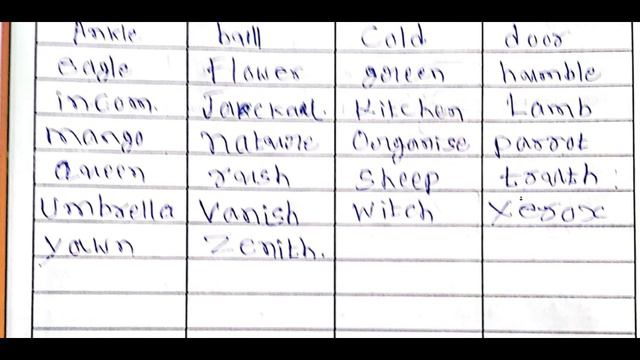 Ankle ball Cold door
eagle flower goreen humble
incom. Jackaul. Kitchen Lamb
mango nature Organise parrot
Queen rush Sheep truth
Umbrella Vanish Witch Xerox
Yawn Zenith.